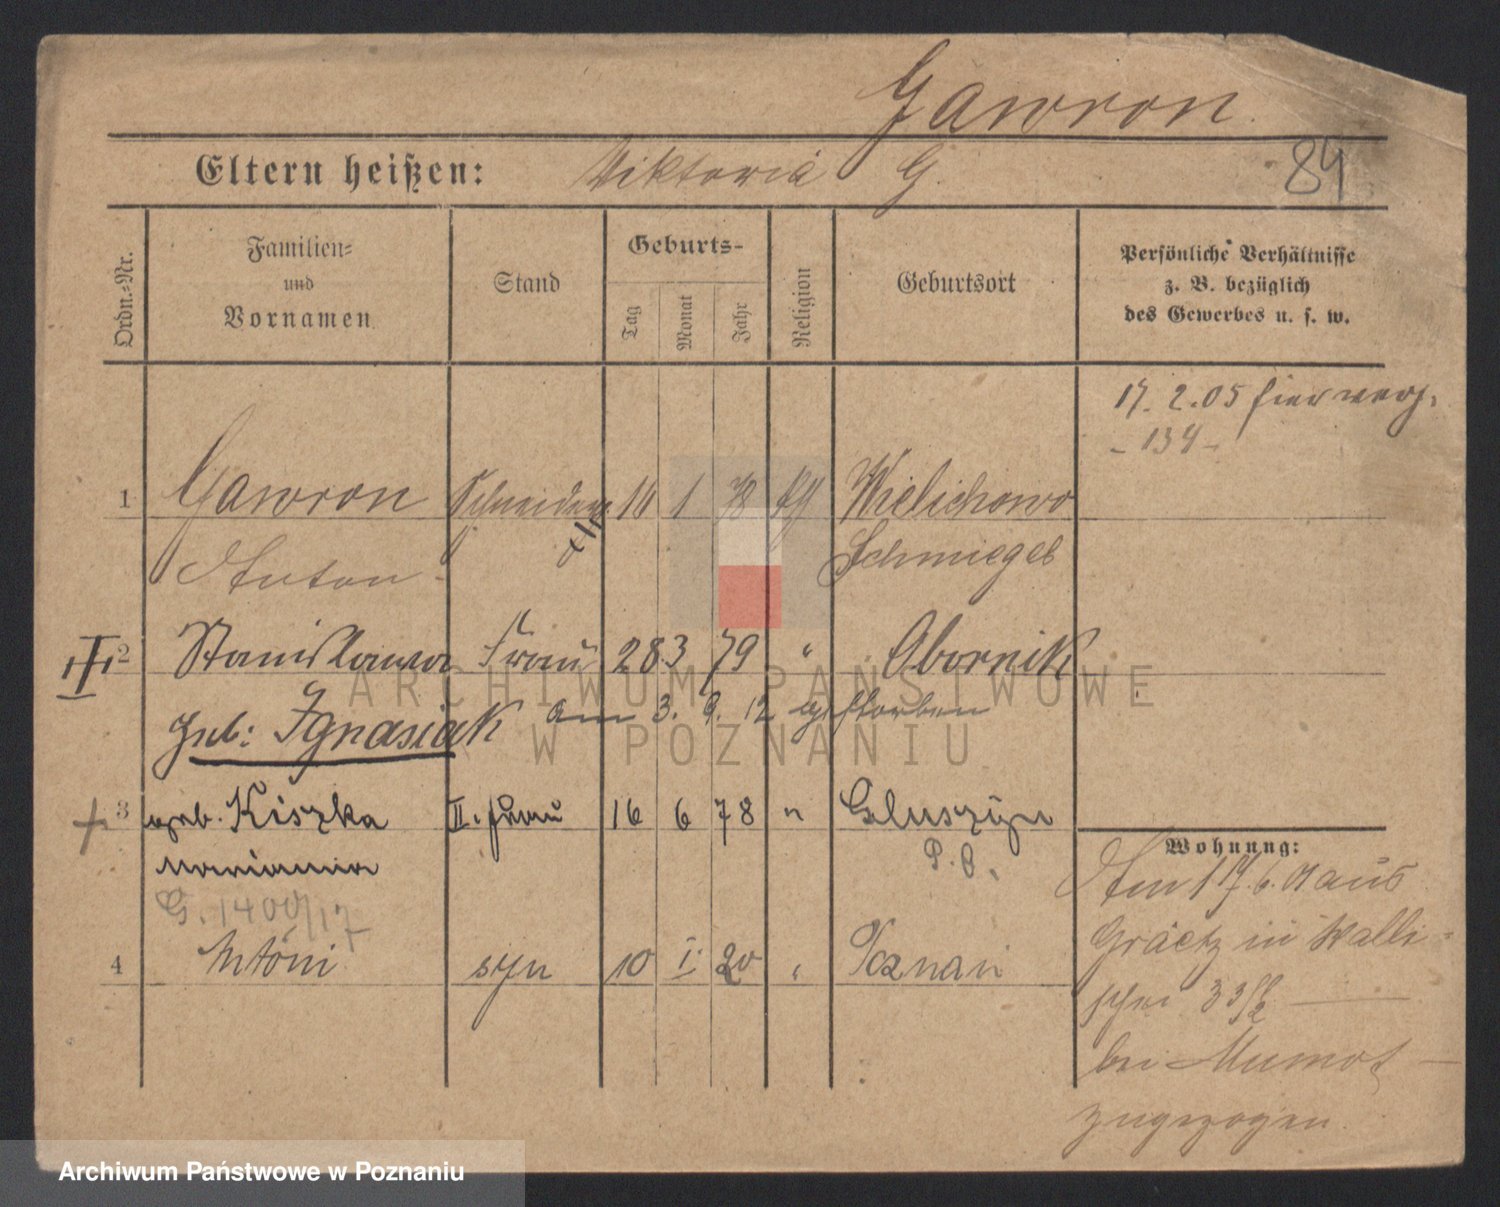 Gawron
Eltern heißen: Viktoria G.
84
Ordn.-Nr.
Familien-
und
Vornamen
Stand
Geburts-
Tag
Monat
Jahr
Religion
Geburtsort
Persönliche Verhältnisse
z. B. bezüglich
des Gewerbes u. s. w.
17. 2. 05 hier
- 134 -
1 Gawron Schneider 1 Wielichowo
Anton Schmiegel
2 Stanislawa Frau 28 3 79 " Obornik
geb: Ignasiak am 3. 9. 12 gestorben
3 geb. Kiszka II. Frau 16 6 78 " Gluszyn
Marianna P. O.
G. 1400/17
4 Antoni syn 10 I. 20 " Poznań
Wohnung:
Am 17. 6. 01 aus
Graetz in Walli-
schei 33
bei Mumot
zugezogen.
ARCHIWUM PAŃSTWOWE
W POZNANIU
Archiwum Państwowe w Poznaniu